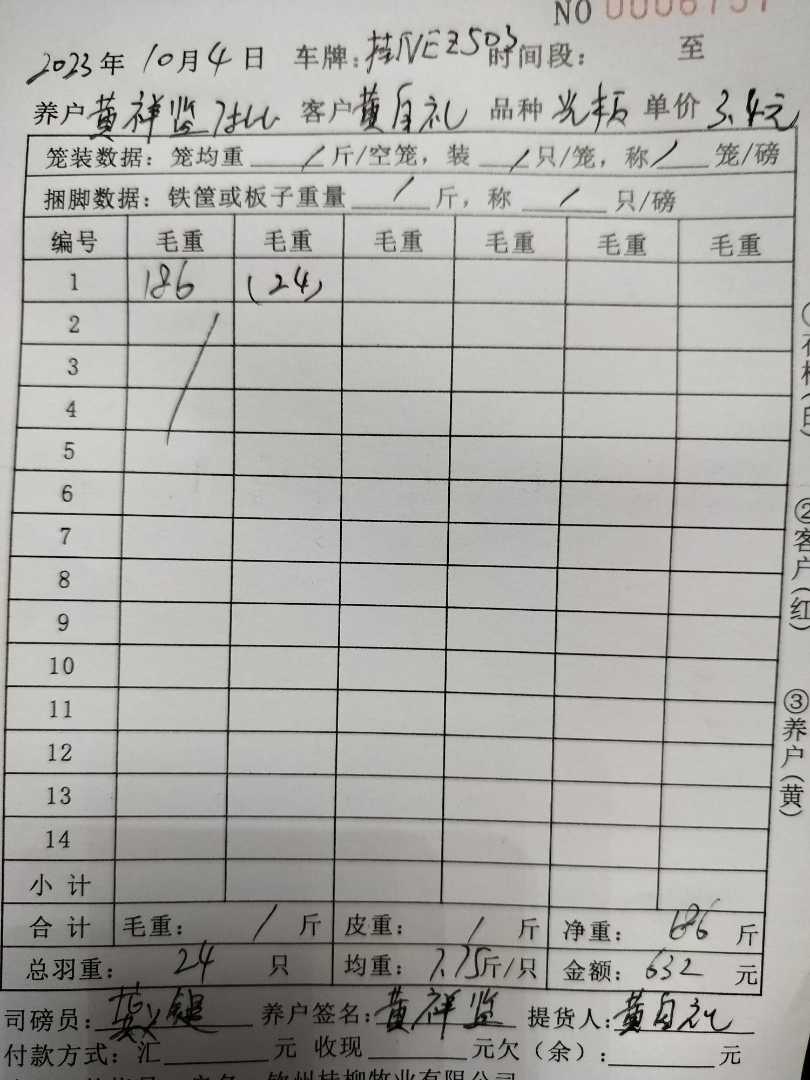 NO 0006757
2023年10月4日 车牌:桂NEZ503时间段: 至
养户黄祥监 客户黄自礼 品种 单价3.4元
笼装数据:笼均重 / 斤/空笼,装 / 只/笼,称 / 笼/磅
捆脚数据:铁筐或板子重量 / 斤,称 / 只/磅
编号 毛重 毛重 毛重 毛重 毛重 毛重
1 186 (24)
2 /
3
4
5
6
7
8
9
10
11
12
13
14
小计
合计 毛重: / 斤 皮重: / 斤 净重: 186 斤
总羽重: 24 只 均重: 7.75斤/只 金额: 632 元
司磅员: 养户签名:黄祥监 提货人:黄自礼
付款方式:汇 元 收现 元欠(余): 元
②客户(红)
③养户(黄)